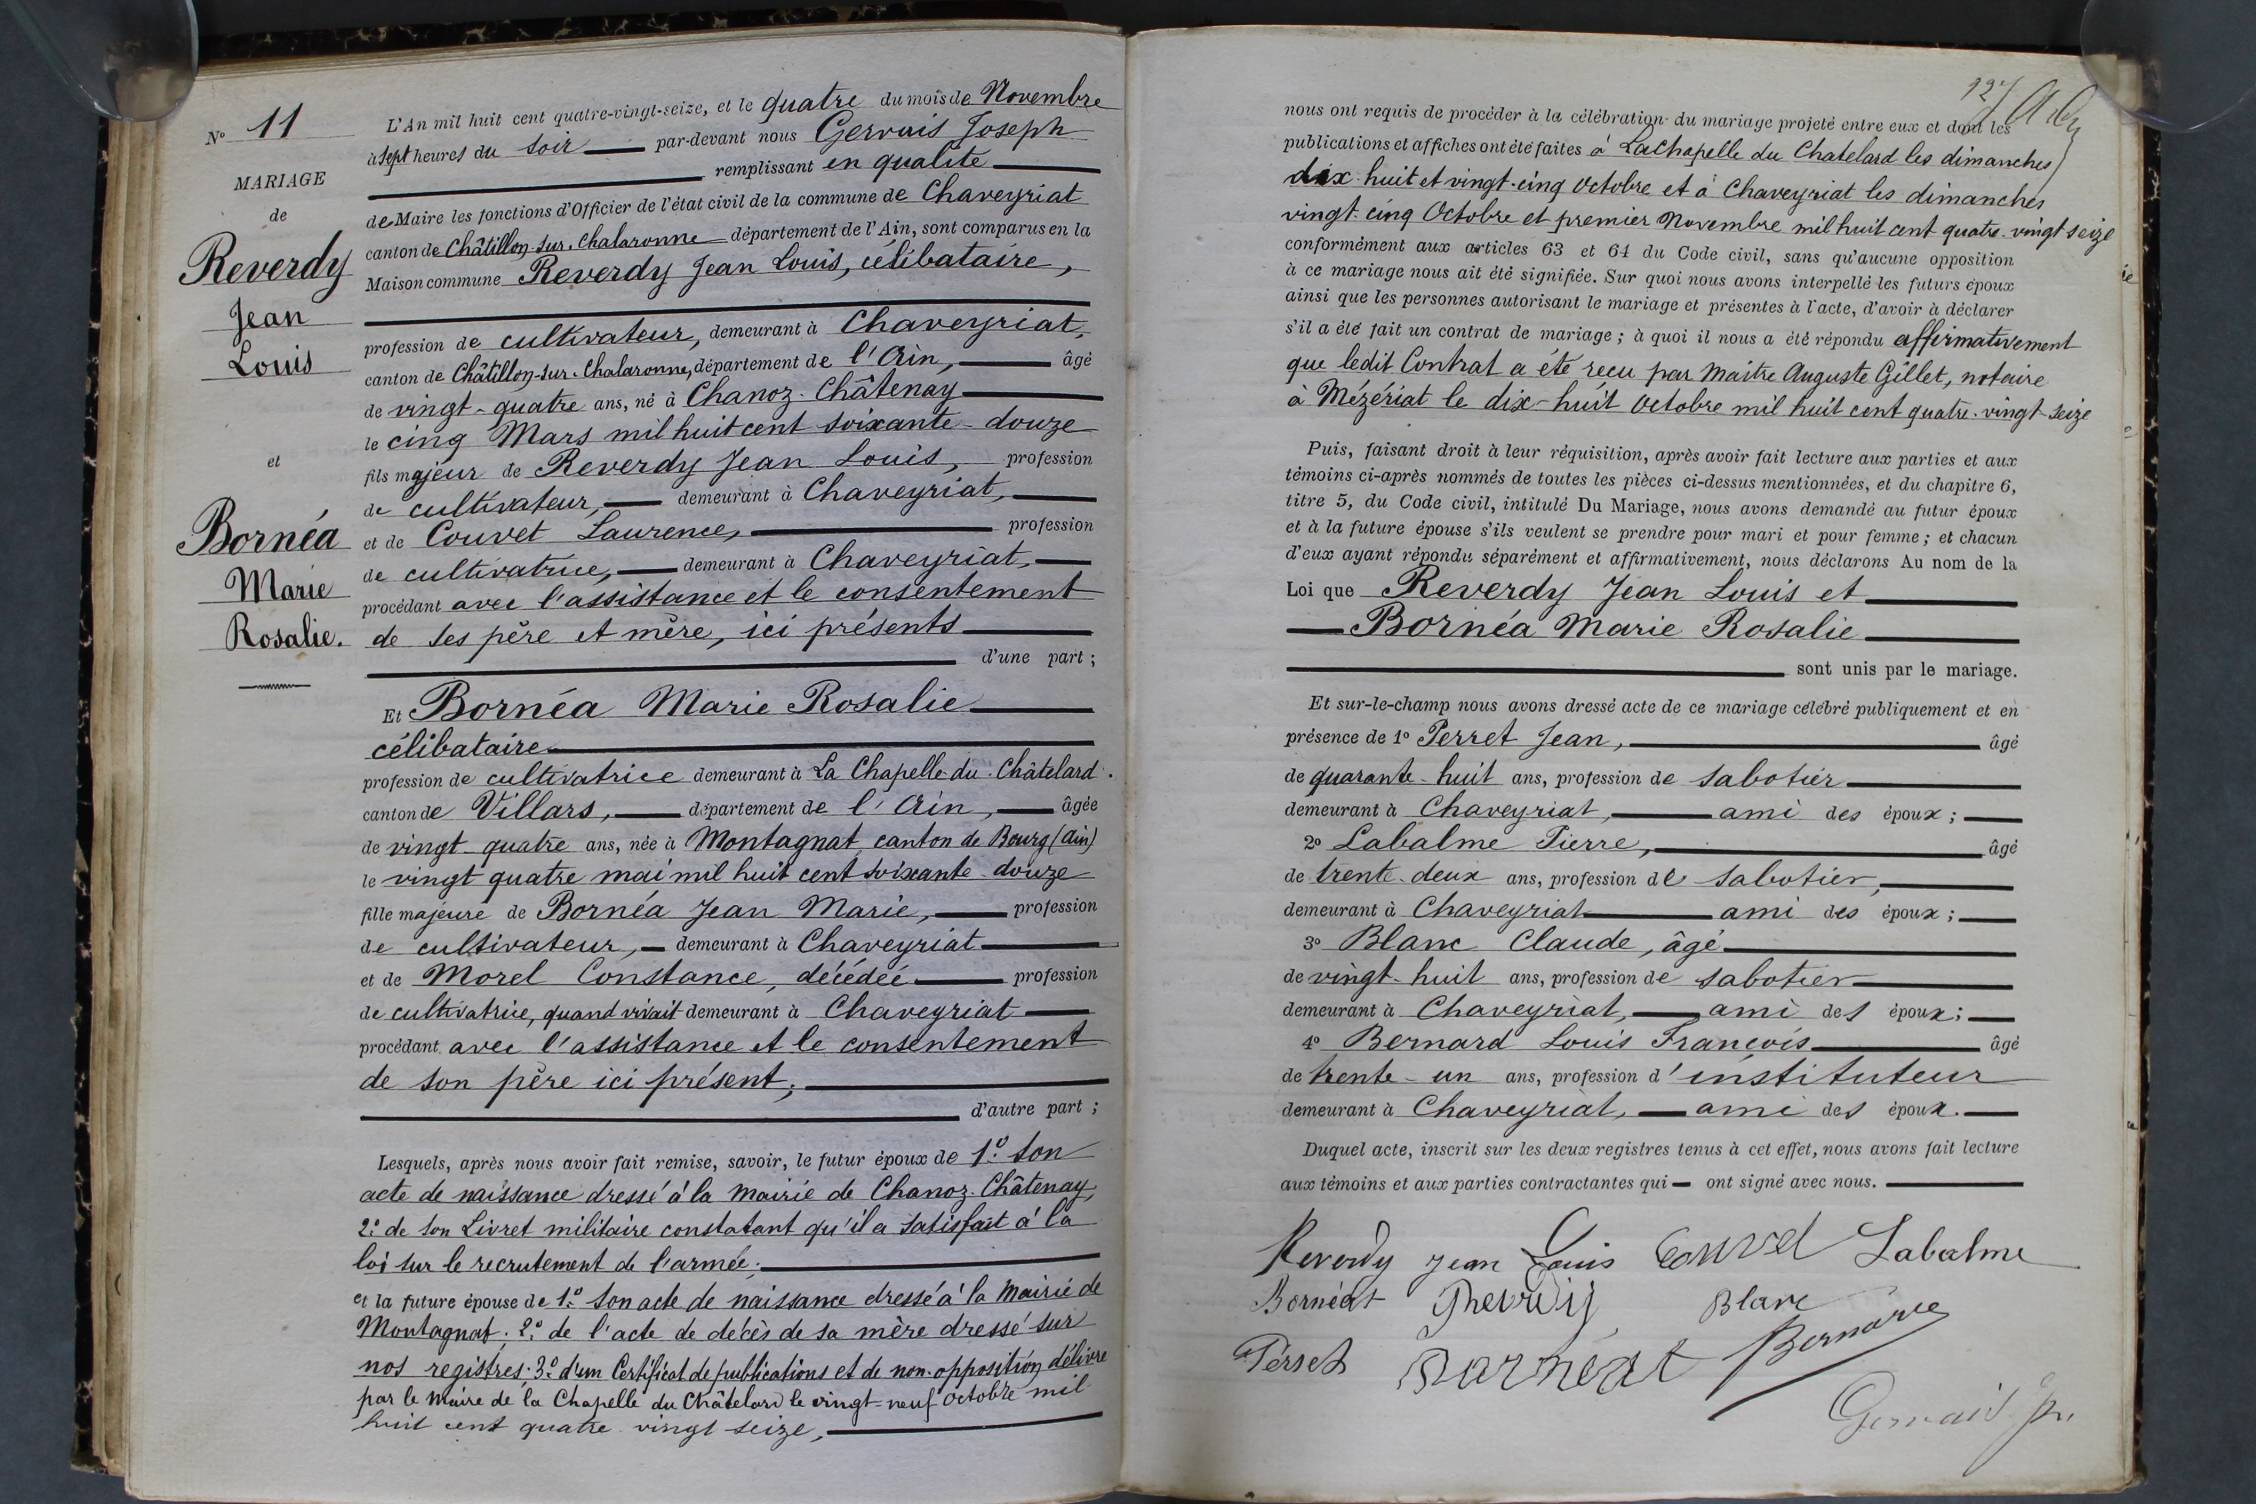 N° 11
MARIAGE
de
Reverdy
Jean
Louis
et
Bornéa
Marie
Rosalie.
L'An mil huit cent quatre-vingt-seize, et le quatre du mois de Novembre
à sept heures du soir par-devant nous Gervais Joseph
remplissant en qualité
de Maire les fonctions d'Officier de l'état civil de la commune de Chaveyriat
canton de Châtillon-sur-Chalaronne département de l'Ain, sont comparus en la
Maison commune Reverdy Jean Louis, célibataire,
profession de cultivateur, demeurant à Chaveyriat,
canton de Châtillon-sur-Chalaronne, département de l'Ain, âgé
de vingt-quatre ans, né à Chanoz-Châtenay
le cinq Mars mil huit cent soixante-douze
fils majeur de Reverdy Jean Louis, profession
de cultivateur, demeurant à Chaveyriat,
et de Couvet Laurence, profession
de cultivatrice, demeurant à Chaveyriat,
procédant avec l'assistance et le consentement
de ses père et mère, ici présents
d'une part ;
Et Bornéa Marie Rosalie
célibataire
profession de cultivatrice demeurant à La Chapelle-du-Châtelard.
canton de Villars, département de l'Ain, âgée
de vingt-quatre ans, née à Montagnat, canton de Bourg (Ain)
le vingt quatre mai mil huit cent soixante-douze
fille majeure de Bornéa Jean Marie, profession
de cultivateur, demeurant à Chaveyriat
et de Morel Constance, décédée profession
de cultivatrice, quand vivait demeurant à Chaveyriat
procédant avec l'assistance et le consentement
de son père ici présent,
d'autre part ;
Lesquels, après nous avoir fait remise, savoir, le futur époux de 1° son
acte de naissance dressé à la mairie de Chanoz-Châtenay,
2° de son Livret militaire constatant qu'il a satisfait à la
loi sur le recrutement de l'armée;
et la future épouse de 1° son acte de naissance dressé à la Mairie de
Montagnat. 2° de l'acte de décès de sa mère dressé sur
nos registres. 3° d'un Certificat de publications et de non-opposition délivré
par le Maire de la Chapelle du Châtelard le vingt-neuf octobre mil
huit cent quatre vingt seize,
127
nous ont requis de procéder à la célébration du mariage projeté entre eux et dont les
publications et affiches ont été faites à La Chapelle du Chatelard les dimanches
dix-huit et vingt-cinq Octobre et à Chaveyriat les dimanches
vingt-cinq Octobre et premier Novembre mil huit cent quatre-vingt seize
conformément aux articles 63 et 64 du Code civil, sans qu'aucune opposition
à ce mariage nous ait été signifiée. Sur quoi nous avons interpellé les futurs époux
ainsi que les personnes autorisant le mariage et présentes à l'acte, d'avoir à déclarer
s'il a été fait un contrat de mariage ; à quoi il nous a été répondu affirmativement
que ledit Contrat a été reçu par Maitre Auguste Gillet, notaire
à Mézériat le dix-huit Octobre mil huit cent quatre-vingt-seize
Puis, faisant droit à leur réquisition, après avoir fait lecture aux parties et aux
témoins ci-après nommés de toutes les pièces ci-dessus mentionnées, et du chapitre 6,
titre 5, du Code civil, intitulé Du Mariage, nous avons demandé au futur époux
et à la future épouse s'ils veulent se prendre pour mari et pour femme ; et chacun
d'eux ayant répondu séparément et affirmativement, nous déclarons Au nom de la
Loi que Reverdy Jean Louis et
Bornéa Marie Rosalie
sont unis par le mariage.
Et sur-le-champ nous avons dressé acte de ce mariage célébré publiquement et en
présence de 1° Perret Jean, âgé
de quarante-huit ans, profession de sabotier
demeurant à Chaveyriat, ami des époux ;
2° Labalme Pierre, âgé
de trente-deux ans, profession de sabotier,
demeurant à Chaveyriat ami des époux ;
3° Blanc Claude, âgé
de vingt-huit ans, profession de sabotier
demeurant à Chaveyriat, ami des époux ;
4° Bernard Louis François âgé
de trente-un ans, profession d'instituteur
demeurant à Chaveyriat, ami des époux.
Duquel acte, inscrit sur les deux registres tenus à cet effet, nous avons fait lecture
aux témoins et aux parties contractantes qui ont signé avec nous.
Reverdy Jean Louis Couvet Labalme
Bornéat Reverdy Blanc
Perret Bornéat Bernard
Gervais Jh.